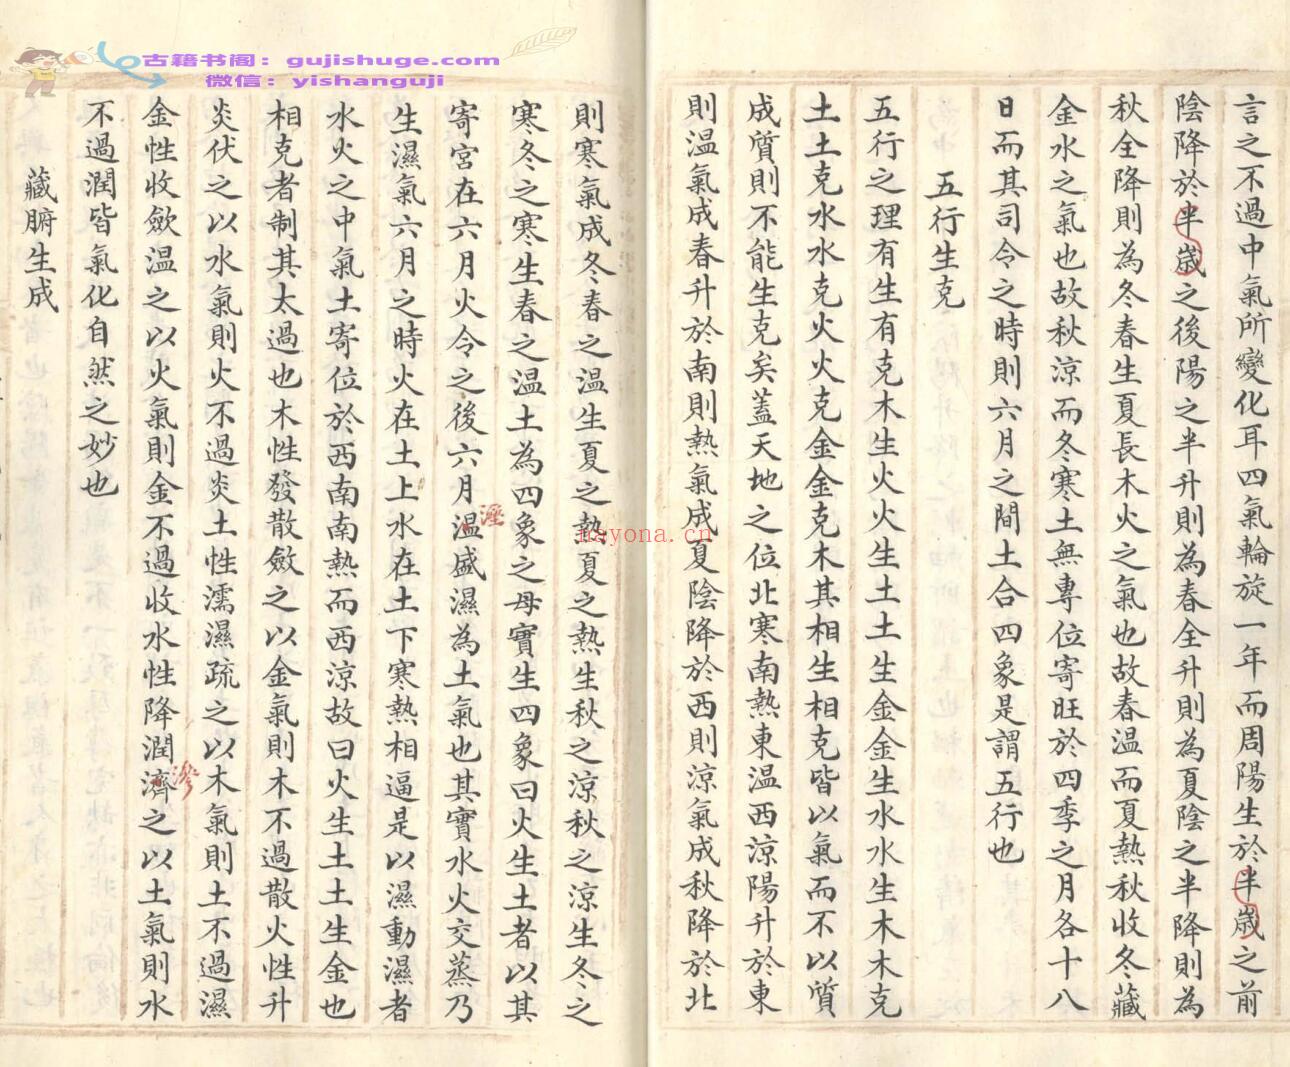 古籍书阁：gujishuge.com
微信：yishanguji
言之不過中氣所變化耳四氣輪旋一年而周陽生於半歲之前
陰降於半歲之後陽之半升則為春全升則為夏陰之半降則為
秋全降則為冬春生夏長木火之氣也故春温而夏熱秋收冬藏
金水之氣也故秋涼而冬寒土無專位寄旺於四季之月各十八
日而其司令之時則六月之間土合四象是謂五行也
五行生克
五行之理有生有克木生火火生土土生金金生水水生木木克
土土克水水克火火克金金克木其相生相克皆以氣而不以質
成質則不能生克矣蓋天地之位北寒南熱東温西涼陽升於東
則温氣成春升於南則熱氣成夏陰降於西則涼氣成秋降於北
則寒氣成冬春之温生夏之熱夏之熱生秋之涼秋之涼生冬之
寒冬之寒生春之温土為四象之母實生四象曰火生土者以其
寄宮在六月火令之後六月温盛濕為土氣也其實水火交蒸乃
溼
生濕氣六月之時火在土上水在土下寒熱相逼是以濕動濕者
水火之中氣土寄位於西南南熱而西涼故曰火生土土生金也
相克者制其太過也木性發散斂之以金氣則木不過散火性升
炎伏之以水氣則火不過炎土性濡濕疏之以木氣則土不過濕
金性收斂温之以火氣則金不過收水性降潤濟之以土氣則水
滲
不過潤皆氣化自然之妙也
藏腑生成
nayona.cn